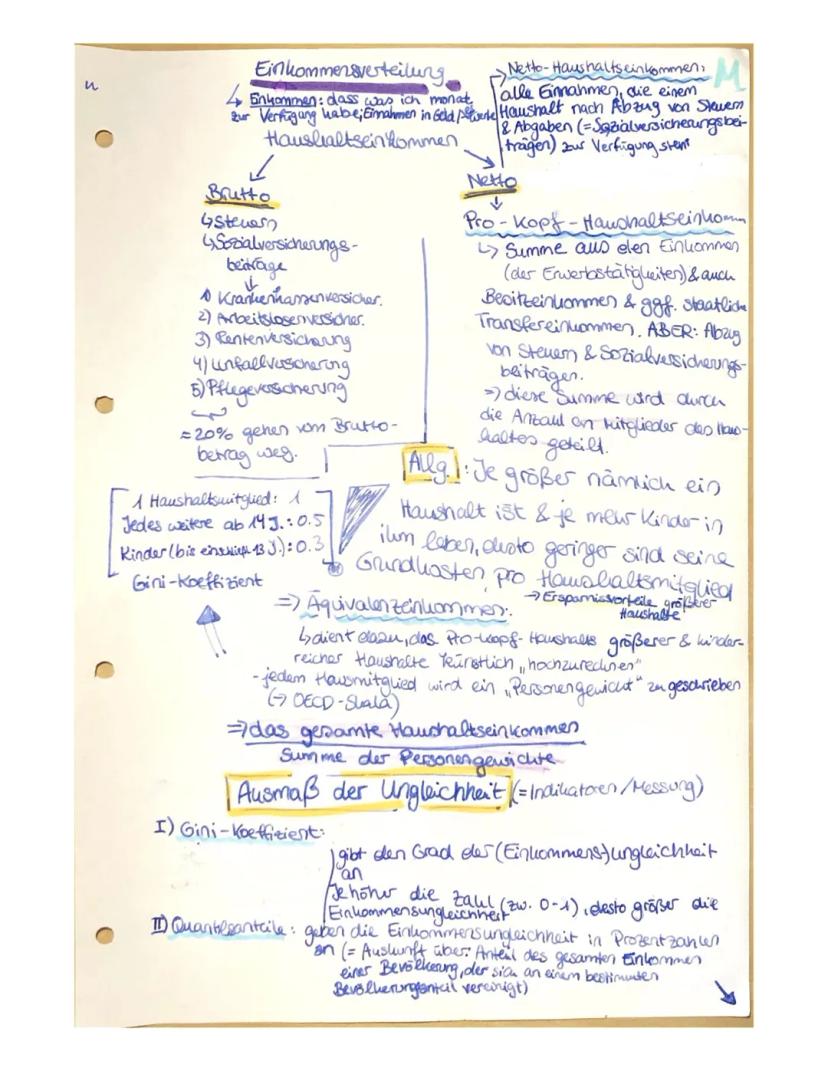 Einkommensverteilung
↳ Einkommen: dass was ich monat.
zur Verfügung habe; Einnahmen in Geld/
Haushaltseinkommen
Netto-Haushaltseinkommen:
alle Einnahmen, die einem
Haushalt nach Abzug von Steuern
& Abgaben (=Sozialversicherungsbei-
trägen) zur Verfügung steht
M
Brutto
↳ Steuern
↳ Sozialversicherungs-
beiträge
↓
1) Krankenkassenversicher.
2) Arbeitslosenversicher.
3) Rentenversicherung
4) Unfallversicherung
5) Pflegeversicherung
≈20% gehen vom Brutto-
betrag weg.
Netto
↓
Pro-Kopf-Haushaltseinkomm
↳ Summe aus den Einkommen
(der Erwerbstätigkeiten) & auch
Besitzeinkommen & ggf. staatliche
Transfereinkommen. ABER: Abzug
von Steuern & Sozialversicherungs-
beiträgen.
=> diese Summe wird durch
die Anzahl an Mitglieder des Haus-
haltes geteilt.
1 Haushaltsmitglied: 1
Jedes weitere ab 14 J.: 0.5
Kinder (bis einschließ 13 J.): 0.3
Gini-Koeffizient
Allg.: Je größer nämlich ein
Haushalt ist & je mehr Kinder in
ihm leben, desto geringer sind seine
Grundkosten pro Haushaltsmitglied
→ Ersparnisvorteile größerer
Haushalte
=> Äquivalenzeinkommen:
↳ dient dazu, das Pro-Kopf-Haushalts größerer & kinder-
reicher Haushalte künstlich „hochzurechnen"
- jedem Hausmitglied wird ein „Personengewicht" zu geschrieben
(→ OECD-Skala)
=> das gesamte Haushaltseinkommen
Summe der Personengewichte
Ausmaß der Ungleichheit (=Indikatoren/Messung)
I) Gini-Koeffizient:
gibt den Grad der (Einkommens)ungleichheit
an
Je höher die Zahl (zw. 0-1), desto größer die
Einkommensungleichheit
II) Quantilsanteile: geben die Einkommensungleichheit in Prozentzahlen
an (= Auskunft über: Anteil des gesamten Einkommen
einer Bevölkerung, der sich an einem bestimmten
Bevölkerungsanteil vereinigt)